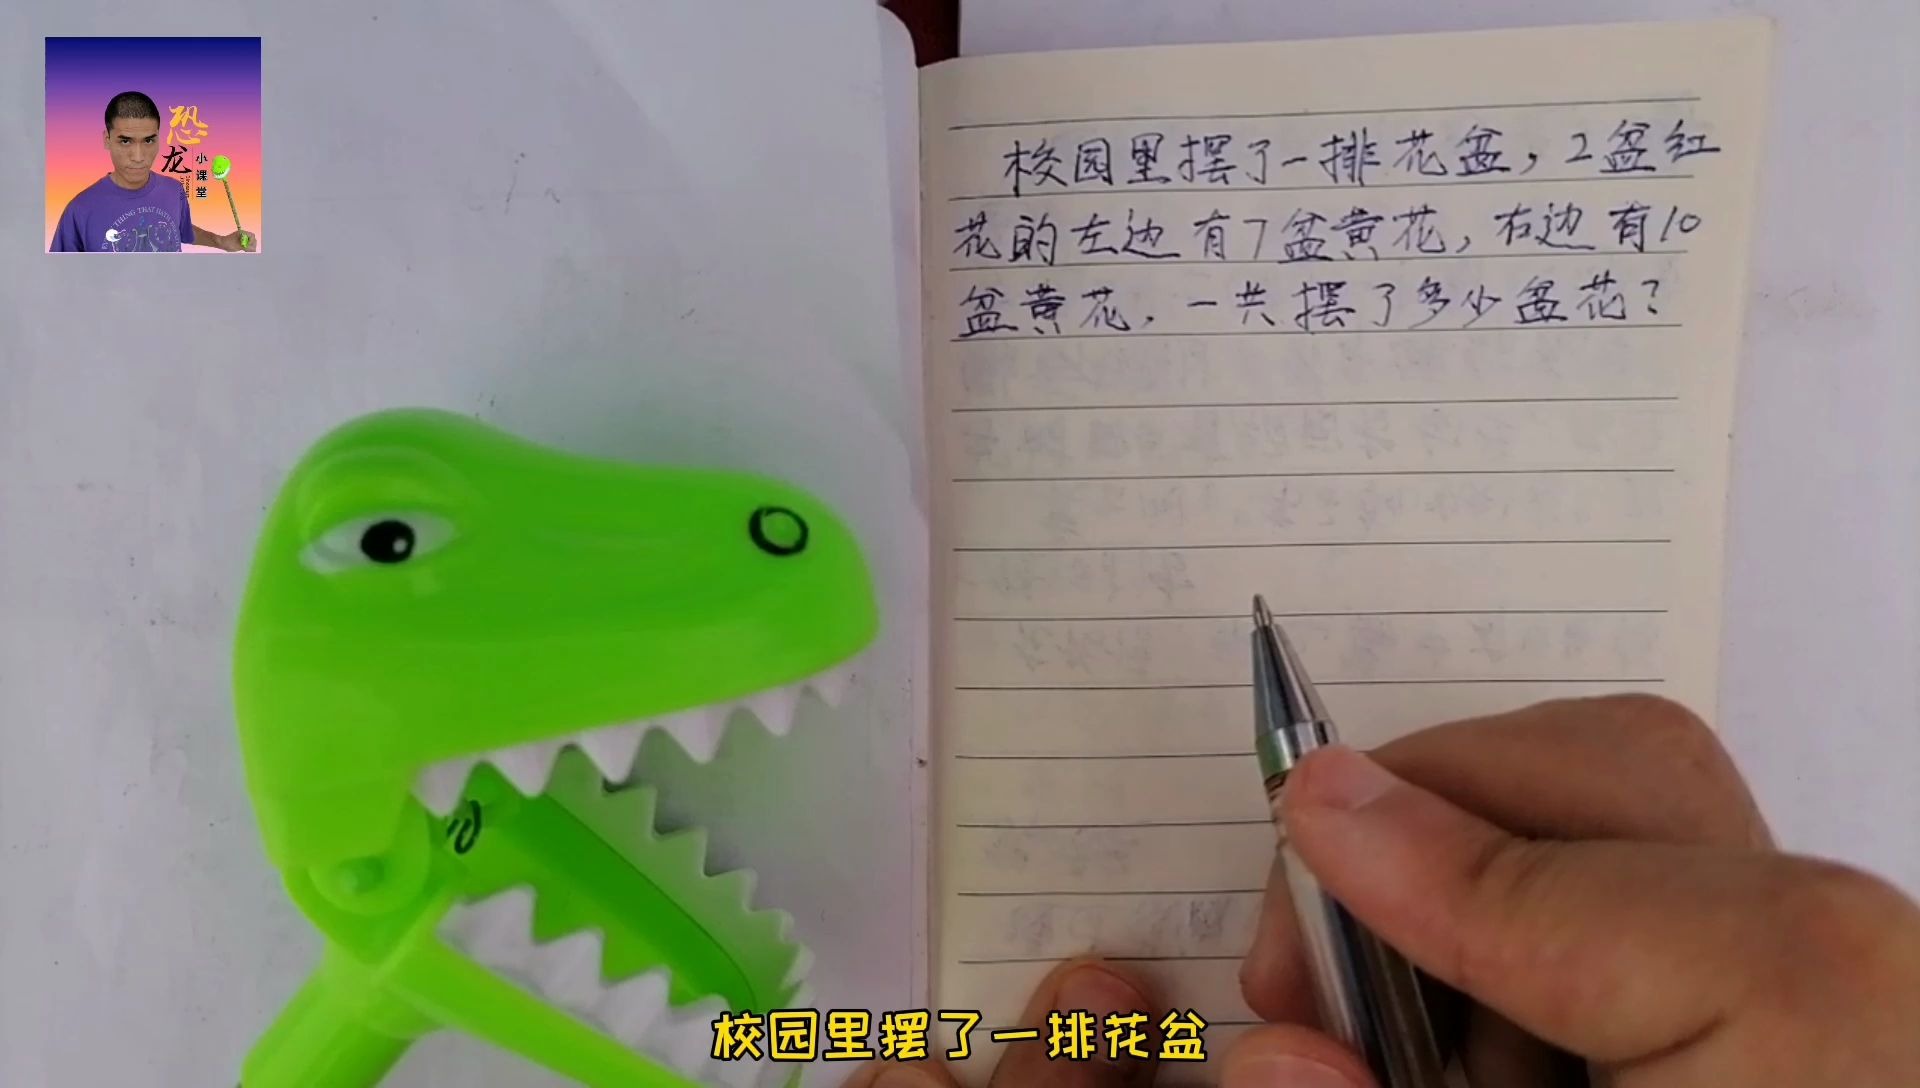 恐龙小课堂
校园里摆了一排花盆，2盆红
花的左边有7盆黄花，右边有10
盆黄花，一共摆了多少盆花？
校园里摆了一排花盆